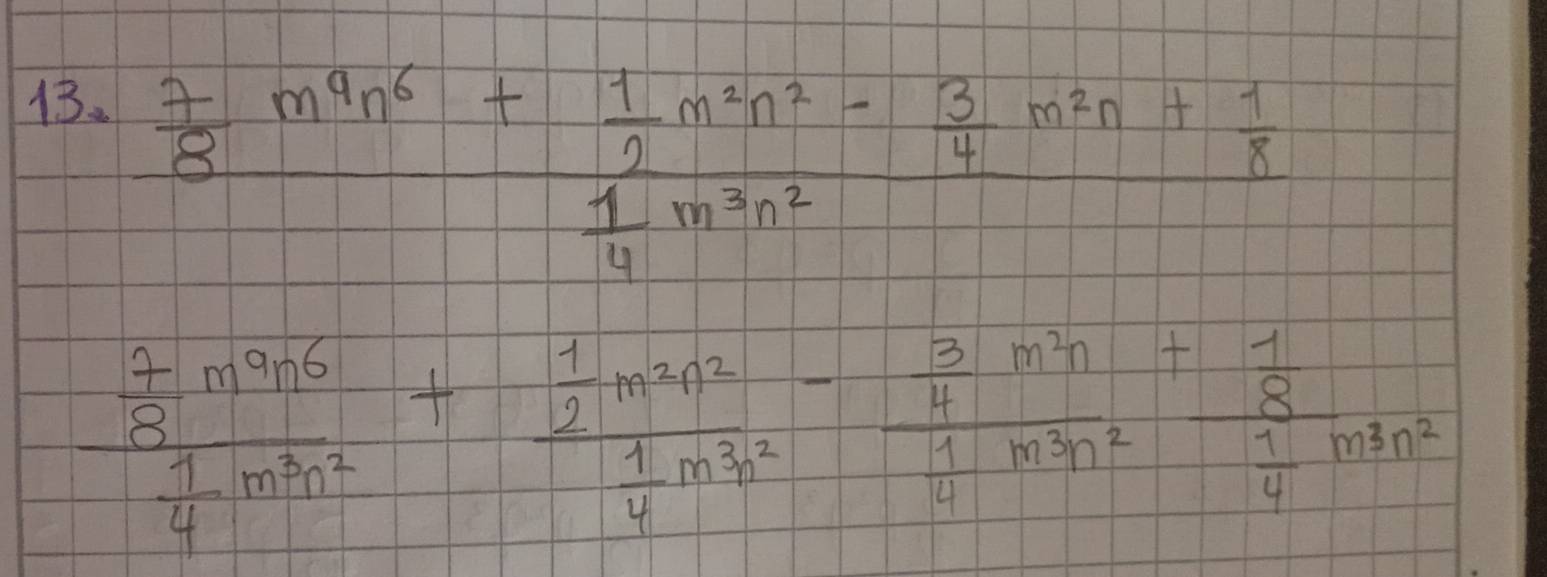 13. 7/8 m⁹n⁶ + 1/2 m²n² - 3/4 m²n + 1/8
1/4 m³n²
7/8 m⁹n⁶ + 1/2 m²n² - 3/4 m²n + 1/8
1/4 m³n² 1/4 m³n² 1/4 m³n² 1/4 m³n²